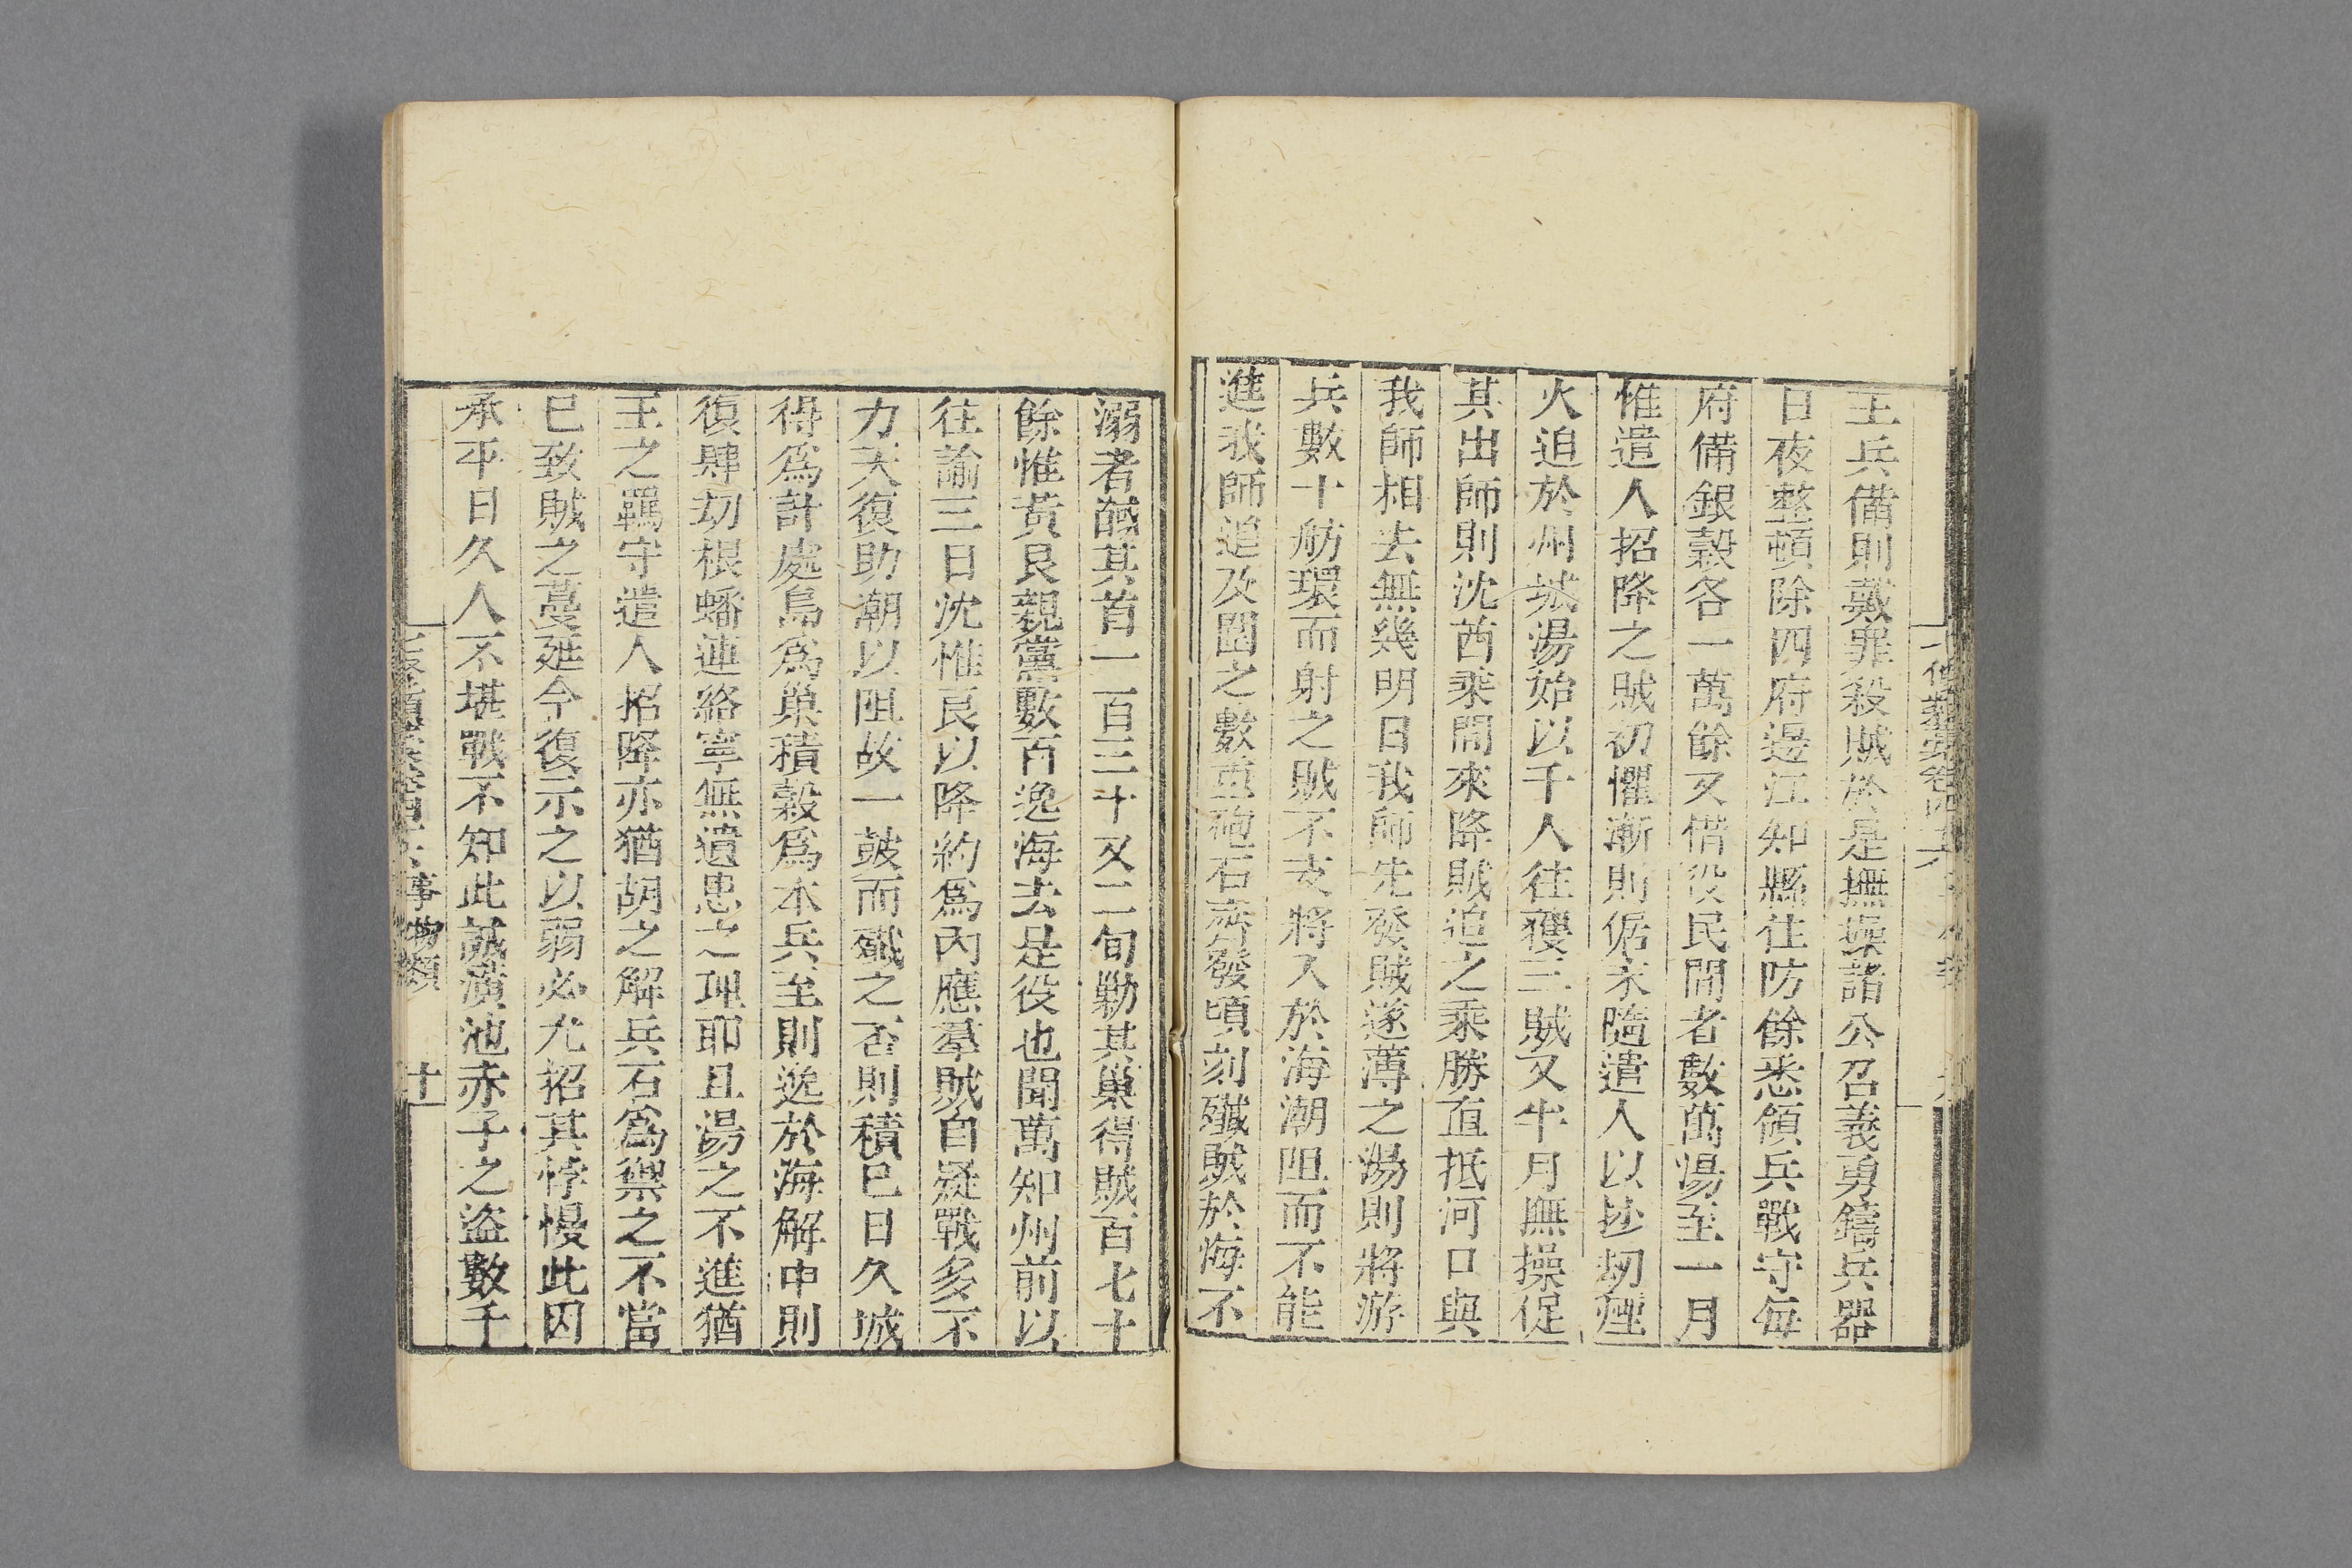 王兵備則戴罪殺賊於是撫操諸公召義勇鑄兵器
日夜整頓除四府邊江知縣往防餘悉領兵戰守每
府備銀穀各一萬餘又借役民間者數萬湯至一月
惟遣人招降之賊初懼漸則倨末隨遣人以抄刼煙
火迫於州城湯始以千人往獲三賊又半月撫操促
其出師則沈酋乘間來降賊迫之乘勝直抵河口與
我師相去無幾明日我師先發賊遂薄之湯則將游
兵數十舫環而射之賊不支將入於海潮阻而不能
進我師追及圍之數重砲石齊發頃刻殲賊於海不
溺者馘其首一百三十又二旬勦其巢得賊百七十
餘惟黃艮親黨數百逸海去是役也聞萬知州前以
往諭三日沈惟良以降約爲內應羣賊自疑戰多不
力天復助潮以阻故一鼓而殲之否則積巳日久城
得爲計處島爲巢積穀爲本兵至則逸於海解申則
復肆刧根蟠連絡寧無遺患之理耶且湯之不進猶
王之羈守遣人招降亦猶胡之解兵石爲禦之不當
巳致賊之蔓延今復示之以弱必尤招其悖慢此因
承平日久人不堪戰不知此誠潢池赤子之盜數千
事物類
十